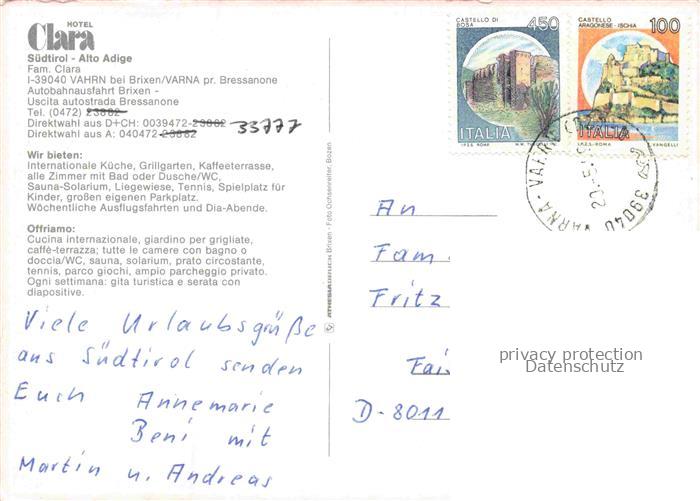 HOTEL
Clara
Südtirol - Alto Adige
Fam. Clara
I-39040 VAHRN bei Brixen/VARNA pr. Bressanone
Autobahnausfahrt Brixen -
Uscita autostrada Bressanone
Tel. (0472) 23882
Direktwahl aus D+CH: 0039472-23882 33777
Direktwahl aus A: 040472-23882
Wir bieten:
Internationale Küche, Grillgarten, Kaffeeterrasse,
alle Zimmer mit Bad oder Dusche/WC,
Sauna-Solarium, Liegewiese, Tennis, Spielplatz für
Kinder, großen eigenen Parkplatz.
Wöchentliche Ausflugsfahrten und Dia-Abende.
Offriamo:
Cucina internazionale, giardino per grigliate,
caffè-terrazza; tutte le camere con bagno o
doccia/WC, sauna, solarium, prato circostante,
tennis, parco giochi, ampio parcheggio privato.
Ogni settimana: gita turistica e serata con
diapositive.
Viele Urlaubsgrüße
aus Südtirol senden
Euch Annemarie
Beni mit
Martin u. Andreas
ATHESIADRUCK Brixen - Foto Ochsenreiter, Bozen
CASTELLO DI
BOSA
450
ITALIA
I.P.Z.S. ROMA
CASTELLO
ARAGONESE - ISCHIA
100
ITALIA
I.P.Z.S. - ROMA
E. VANGELLI
39040 VARNA - VAHRN
An
Fam.
Fritz
D-8011
privacy protection
Datenschutz